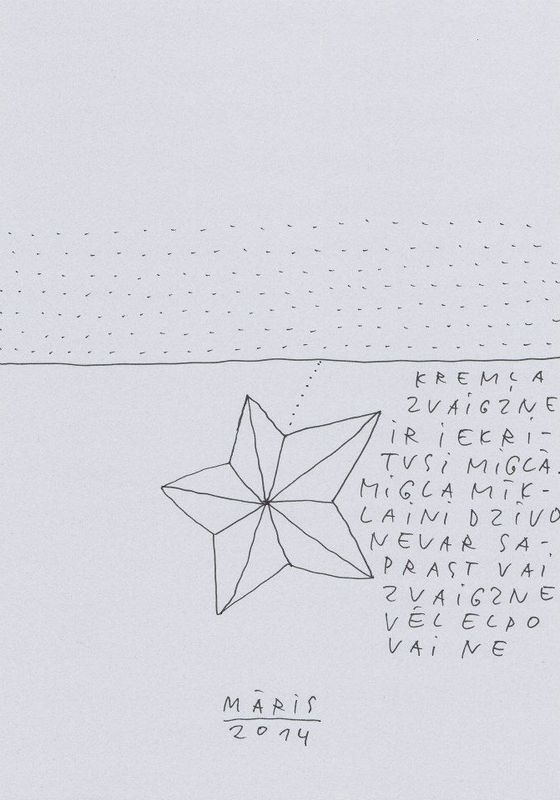 KREMĻA
ZVAIGZNE
IR IEKRI-
TUSI MIGLĀ.
MIGLA MĪK-
LAINI DZĪVO
NEVAR SA-
PRAST VAI
ZVAIGZNE
VĒL ELPO
VAI NE
MĀRIS
2014